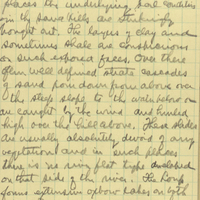 places the underlying hard
in the same hills are strikingly
brought out. The layers of clay and
sometimes shale are conspicuous
on such exposed faces. Over these
often well defined strata cascades
of sand pour down from above over
the steep slope to the water below or
are caught by the wind and hurled
high over the hill above. These slides
are usually absolutely devoid of any
vegetation and in such places
there is no river flat type developed
on that side of the river. The Loup
forms extensive oxbow lakes on both